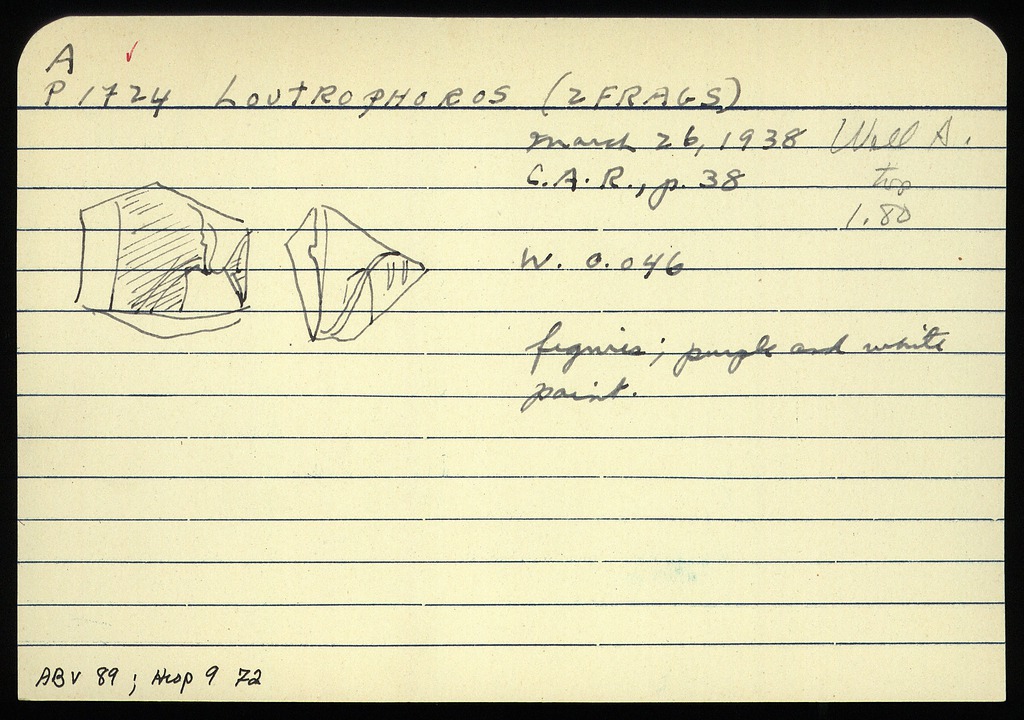 A
P 1724 LOUTROPHOROS (2 FRAGS)
March 26, 1938 Well A.
C.A.R., p. 38 top
1.80
W. 0.046
figures; purple and white
paint.
ABV 89; Hesp 9 72